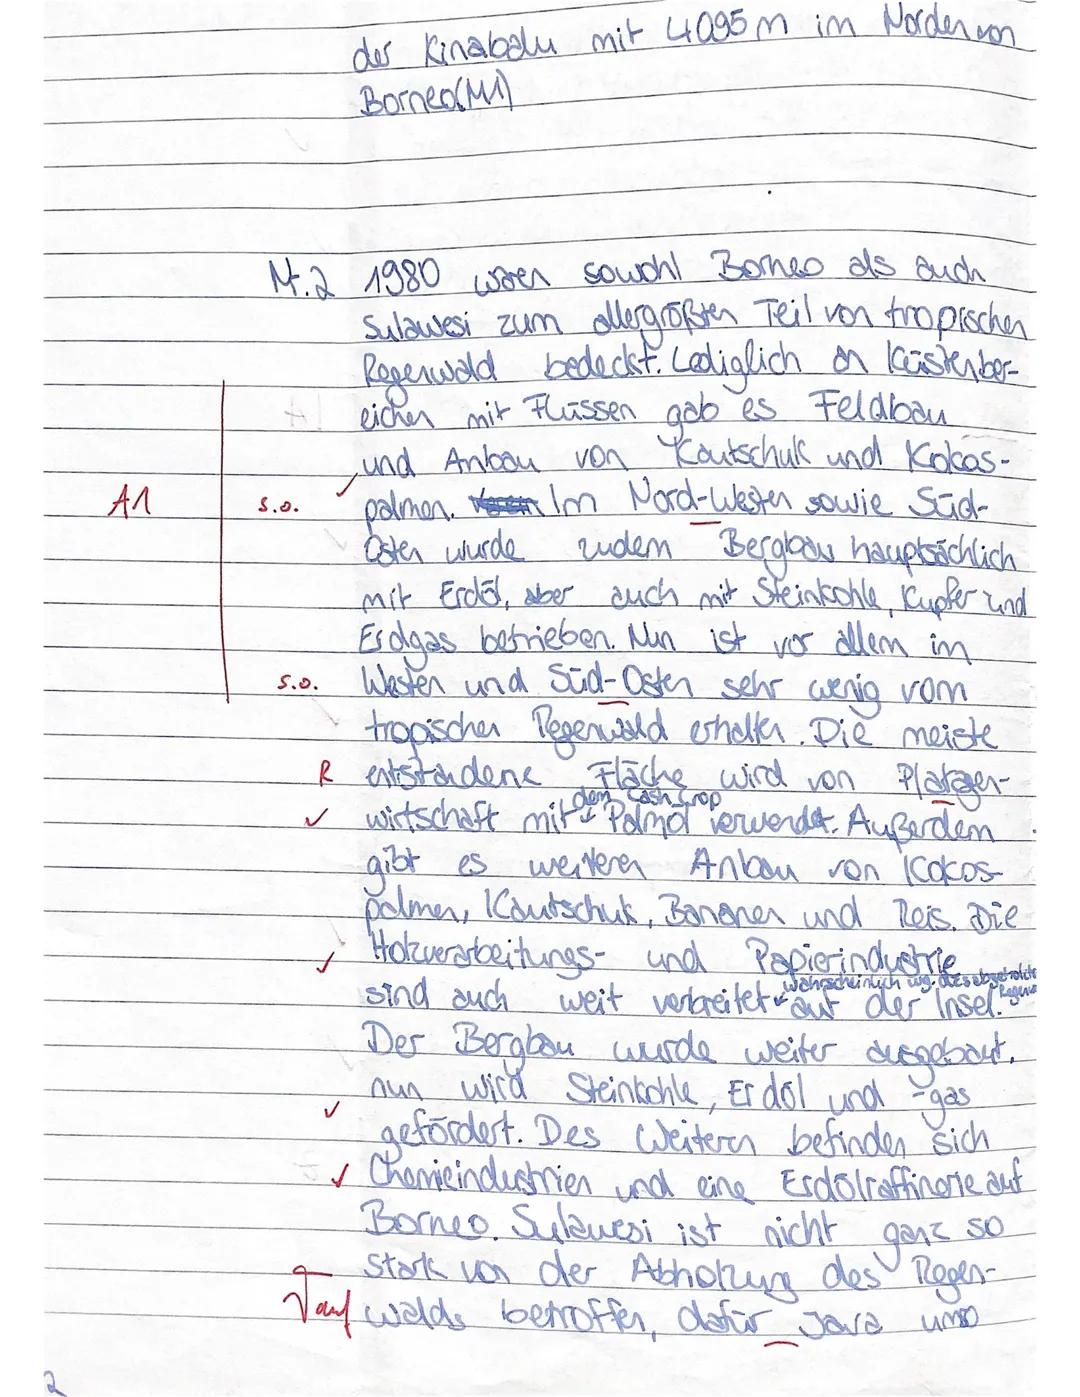 der Kinabalu mit 4095 m im Norden von
Borneo(M1)
M.2 1980 waren sowohl Borneo als auch
Sulawesi zum allergrößten Teil von tropischen
Regenwald bedeckt. Lediglich an Küstenber-
eichen mit Flüssen gab es Feldbau
und Anbau von Kautschuk und Kokos-
A1 s.o. ✓ palmen. Im Nord-Westen sowie Süd-
Osten wurde zudem Bergbau hauptsächlich
mit Erdöl, aber auch mit Steinkohle, Kupfer und
Erdgas betrieben. Nun ist vor allem im
s.o. Westen und Süd-Osten sehr wenig vom
tropischen Regenwald erhalten. Die meiste
R entstandene Fläche wird von Platagen-
dem Cash Crop
✓ wirtschaft mit Palmöl verwendet. Außerdem
gibt es weiteren Anbau von Kokos-
palmen, Kautschuk, Bananen und Reis. Die
✓ Holzverarbeitungs- und Papierindustrie
wahrscheinlich wg. des
sind auch weit verbreitet auf der Insel.
Der Bergbau wurde weiter ausgebaut,
nun wird Steinkohle, Erdöl und -gas
✓ gefördert. Des Weiteren befinden sich
✓ Chemieindustrien und eine Erdölraffinerie auf
Borneo. Sulawesi ist nicht ganz so
stark von der Abholzung des Regen-
auf walds betroffen, dafür Java und
2